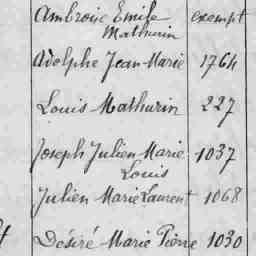 Ambroise Emile exempt
Mathurin
Adolphe Jean-Marie 1764
Louis Mathurin 227
Joseph Julien-Marie 1037
Louis
Julien Marie Laurent 1068
Désiré Marie Pierre 1030